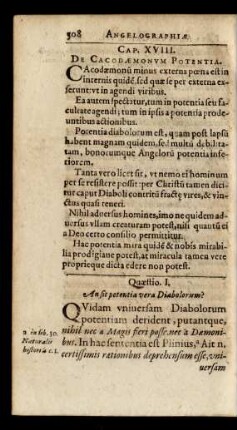 508 ANGELOGRAPHIÆ
CAP. XVIII.
DE CACODÆMONVM POTENTIA.
CAcodæmonũ minus externa pœna est in
internis quidẽ, sed quæ se per externa ex-
serunt: vt in agendi viribus.
Ea autem spectatur, tum in potentia seu fa-
culcate agendi; tum in ipsis a potentia prode-
untibus actionibus.
Potentia diabolorum est, quam post lapsũ
habent magnam quidem, sed multũ debilita-
tam, bonorumque Angelorũ potentia infe-
riorem.
Tanta vero licet sit, vt nemo ei hominum
per se resistere possit: per Christũ tamen dici-
tur caput Diaboli contritũ fractę vires, & vin-
ctus quasi teneri.
Nihil aduersus homines, imo ne quidem ad-
uersus vllam creaturam potest, nisi quantũ ei
a Deo certo consilio permittitur.
Hac potentia mira quidẽ & nobis mirabi-
lia prodigiane potest, at miracula tamen vere
proprieque dicta edere non potest.
Quæstio. I.
An sit potentia vera Diabolorum?
QVidam vniuersam Diabolorum
potentiam derident, putantque,
nihil nec a Magis fieri posse, nec a Dæmoni-
bus. In hac sententia est Plinius, a Ait n.
certissimis rationibus deprehensum esse, vni-
uersam
a in lib. 30.
Naturalis
historiæ c. 1.